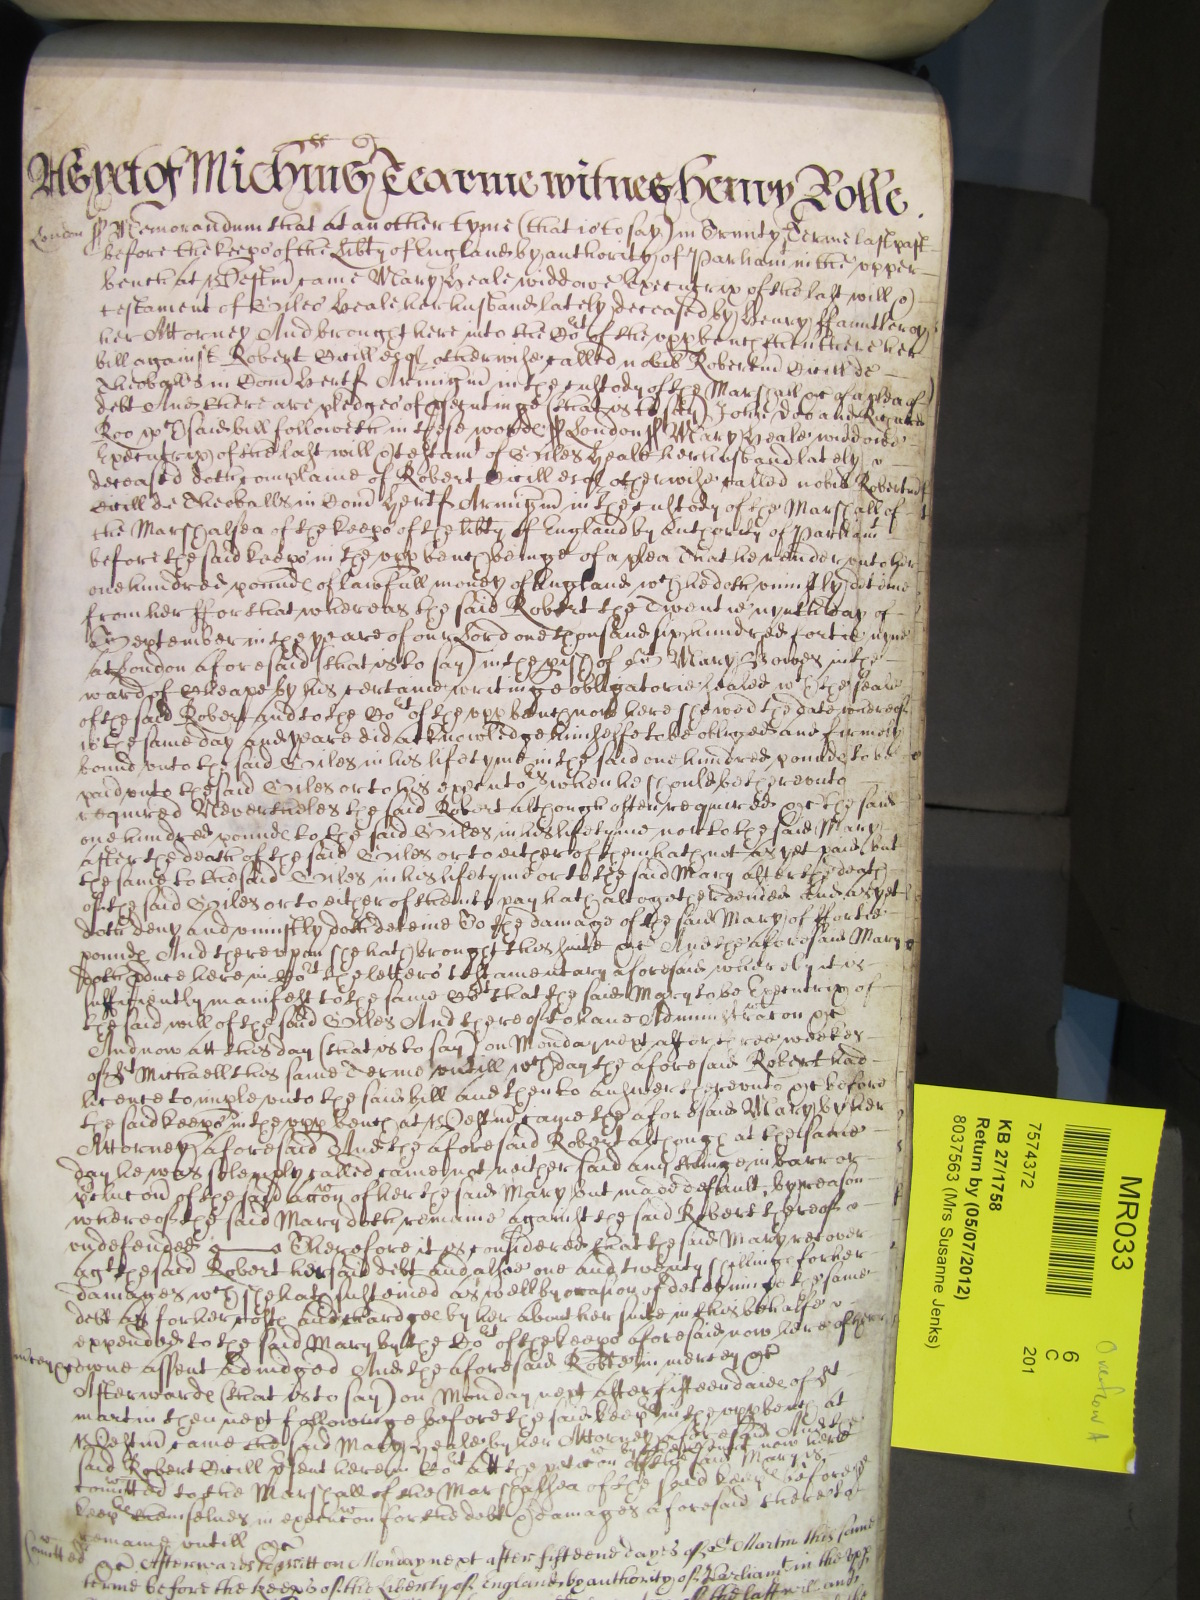 As yet of Mich'mas Tearme witnes Henry Rolle.
London ss Memorandum that at another tyme (that is to say) in Trinity Terme last past
before the keepers of the Libty of England by authority of Parliam in the upper
bench at Westm came Mary Heale widdowe Executrix of the last will &
testament of Giles Heale her husband lately deceased by Henry ffauntleroy
her Attorney And brought here into the Cort of the upp bench then there her
bill against Robert Cecill esqr otherwise called nobis Robertum Cecill de
Theoballs in Com Hertf Armigm in the custody of the Marshall &c of a plea of
debt And there are pledges of psecutinge (that is to say) John Doo and Richard
Roo wch said bill followeth in these wordes ss London ss Mary Heale widdowe
Executrix of the last will & testamt of Giles Heale her husband lately
deceased doth complaine of Robert Cecill esqr otherwise called nobis Robertum
Cecill de Theoballs in Com Hertf Armigm in the custody of the Marshall of
the Marshalsea of the keeps of the libty of England by Authority of Parliamt
before the said keeps in the upp bench beinge of a plea That he render unto her
one hundred pounds of lawfull money of England wch he doth uniustly detaine
from her ffor that whereas the said Robert the Twentie nynth day of
September in the yeare of our Lord one thousand six hundred fortie nyne
at London aforesaid (that is to say) in the pish of St Mary Bowes in the
ward of Cheape by his certaine writinge obligatorie sealed wth the seale
of the said Robert and to the Cort of the upp bench now here shewed the date whereof
is the same day and yeare did acknowledge himselfe to be obliged and firmely
bound unto the said Giles in his lifetyme in the said one hundred pounds to be
paid unto the said Giles or to his executors when he should be thereunto
required Nevertheles the said Robert although often required &c the said
one hundred pounds to the said Giles in his lifetyme nor to the said Mary
after the death of the said Giles or to either of them hath not as yet paid but
the same to the said Giles in his lifetyme or to the said Mary after the death
of the said Giles or to either of them to pay hath altogether denied And as yet
doth deny and uniustly doth deteine To the damage of the said Mary of ffortie
pounds And thereupon she hath brought this suite &c And the aforesaid Mary
doth pduce here in Cort the letters testamentary aforesaid whereby it is
sufficiently manifest to the same Cort that the said Mary to be Executrix of
the said will of the said Giles And thereof to have Administracon &c
And now att this day (that is to say) on Monday next after three weekes
of St Michaell this same Terme untill wch day the aforesaid Robert had
licence to imple unto the said bill and then to answer thereunto &c before
the said keeps in the upp bench at Westm came the aforesaid Mary by her
Attorney aforesaid And the aforesaid Robert although at the same
day he was solemply called came not neither said any thinge in barr or
pclucon of the said accon of her the said Mary but made default, by reason
whereof the said Mary doth remaine against the said Robert thereof
undefended Therefore it is considered that the said Mary recover
agt the said Robert her said debt and alsoe one and twenty shillings for her
damages wch she hath susteined as well by occasion of deteyninge the same
debt as for her costs and chardges by her about her suite in this behalfe
expended to the said Mary by the Cort of the keeps aforesaid now here of her
mercy owne assent Adiudged And the aforesaid Robte in mercy &c
Afterwards (that is to say) on Monday next after fifteen daies of St
Martin then next followinge before the said keeps in the upp bench at
Westm came the said Mary Heale by her Attorney aforesaid And the
said Robert Cecill psent here in Cort att the peticon of the said Mary is
by the same Cort now here
comitted to the Marshall of the Marshalsea of the said keeps before the
keeps themselves in execucon for the debt & damages aforesaid there to
Comitted remaine untill &c
&c Afterwards to witt on Monday next after fifteene dayes of St Martin this same
terme before the keeps of the Liberty of England by authority of Parliamt in the upp
of the last will and
MR033
6
C
201
7574372
KB 27/1758
Return by (05/07/2012)
8037563 (Mrs Susanne Jenks)
Overflow A